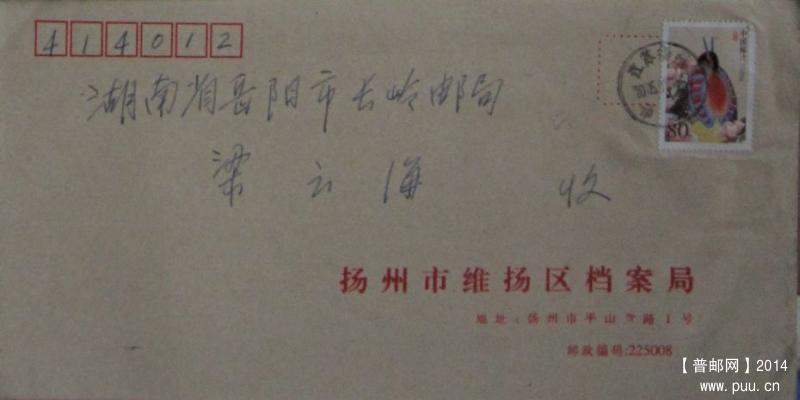 414012
中国邮政
80
湖南省岳阳市长岭邮局
梁云海 收
扬州市维扬区档案局
地址:扬州市平山堂路1号
邮政编码:225008
【普邮网】2014
www.puu.cn